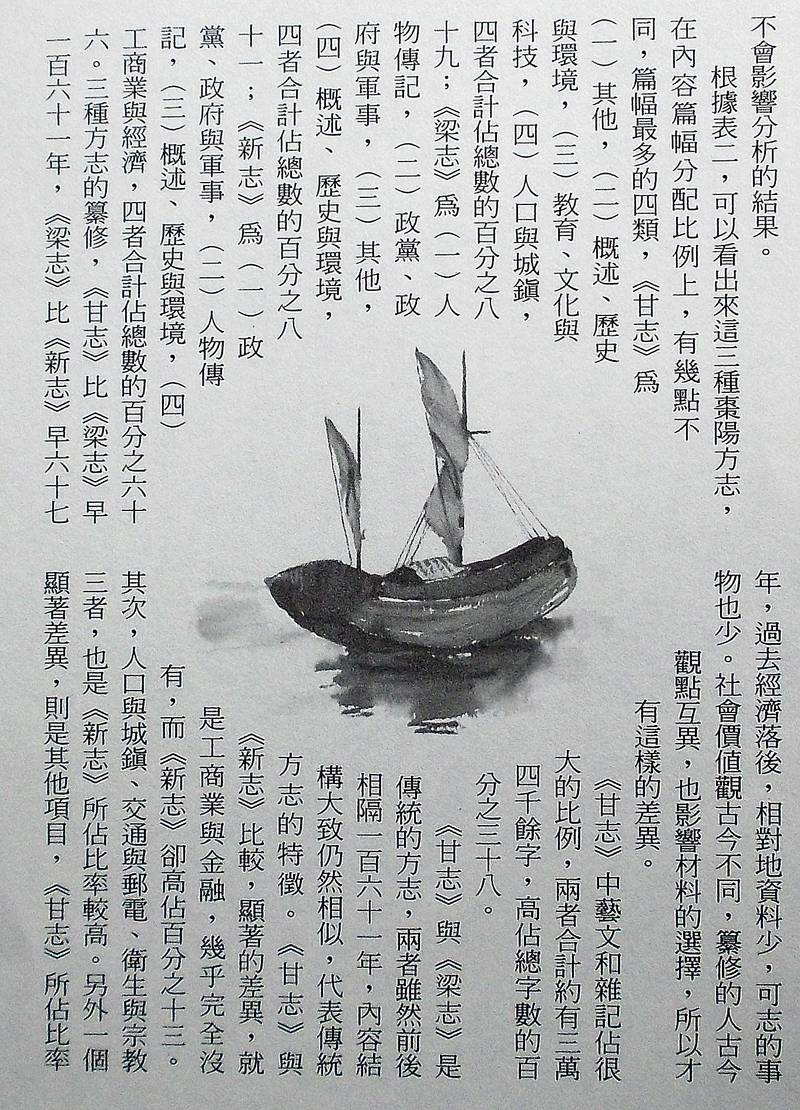 不會影響分析的結果。
根據表二，可以看出來這三種棗陽方志，
在內容篇幅分配比例上，有幾點不
同，篇幅最多的四類，《甘志》爲
（一）其他，（二）概述、歷史
與環境，（三）教育、文化與
科技，（四）人口與城鎮，
四者合計佔總數的百分之八
十九；《梁志》爲（一）人
物傳記，（二）政黨、政
府與軍事，（三）其他，
（四）概述、歷史與環境，
四者合計佔總數的百分之八
十一；《新志》爲（一）政
黨、政府與軍事，（二）人物傳
記，（三）概述、歷史與環境，（四）
工商業與經濟，四者合計佔總數的百分之六十
六。三種方志的纂修，《甘志》比《梁志》早
一百六十一年，《梁志》比《新志》早六十七
年，過去經濟落後，相對地資料少，可志的事
物也少。社會價值觀古今不同，纂修的人古今
觀點互異，也影響材料的選擇，所以才
有這樣的差異。
《甘志》中藝文和雜記佔很
大的比例，兩者合計約有三萬
四千餘字，高佔總字數的百
分之三十八。
《甘志》與《梁志》是
傳統的方志，兩者雖然前後
相隔一百六十一年，內容結
構大致仍然相似，代表傳統
方志的特徵。《甘志》與
《新志》比較，顯著的差異，就
是工商業與金融，幾乎完全沒
有，而《新志》卻高佔百分之十三。
其次，人口與城鎮、交通與郵電、衛生與宗教
三者，也是《新志》所佔比率較高。另外一個
顯著差異，則是其他項目，《甘志》所佔比率